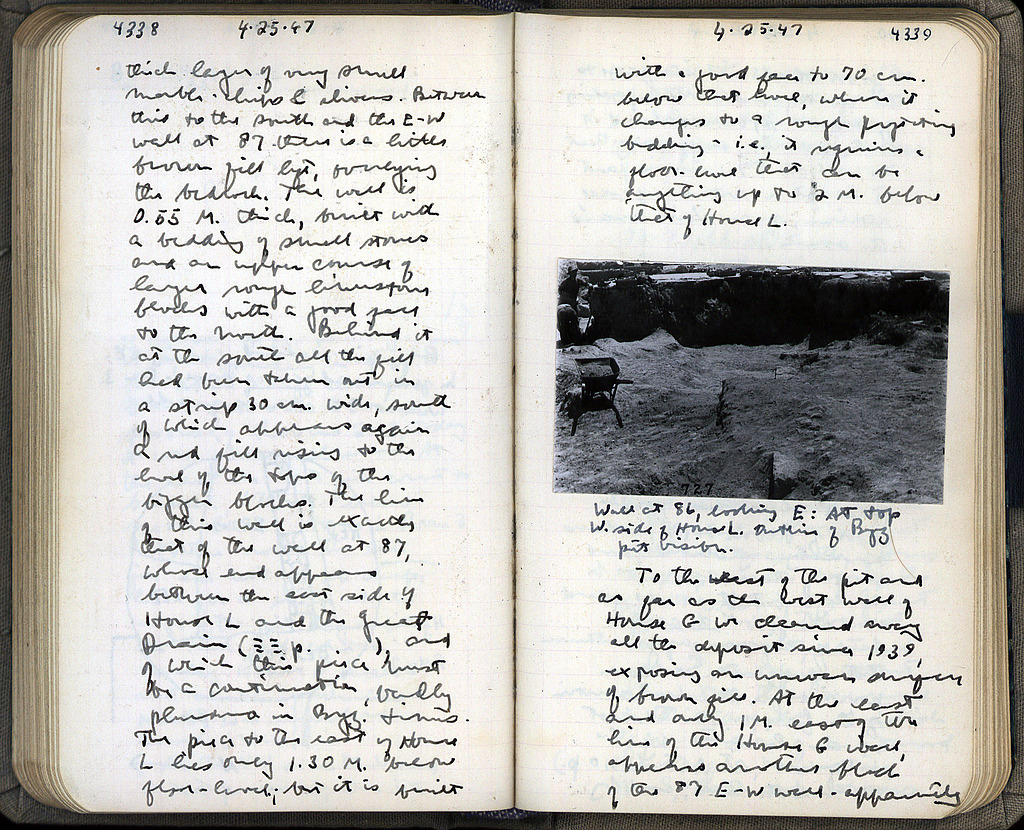 4338 4.25.47
thick layer of very small
marble chips & slivers. Between
this to the south and the E-W
wall at 87 there is a little
brown fill left, overlying
the bedrock. The wall is
0.55 M. thick, built with
a bedding of small stones
and an upper course of
larger rough limestone
blocks with a good face
to the north. Behind it
at the south all the fill
had been taken out in
a strip 30 cm. wide, south
of which appears again
a red fill rising to the
level of the tops of the
bigger blocks. The line
of this wall is exactly
that of the wall at 87,
whose end appears
between the east side of
House L and the Great
Drain (ΞΞ p. ), and
of which this piece must
be a continuation, badly
plundered in Byz. times.
The piece to the east of House
L lies only 1.30 M. below
floor-level; but it is built
4.25.47 4339
with a good face to 70 cm.
below that level, where it
changes to a rough projecting
bedding - i.e., it requires a
floor-level that can be
anything up to 2 M. below
that of House L.
727
Wall at 86, looking E: At top
W. side of House L. Outline of Byz
pit visible.
To the west of the pit and
as far as the west wall of
House G we cleaned away
all the deposit since 1939,
exposing an uneven surface
of brown fill. At the east
and only 1 M. east of the
line of the House G wall,
appears another block
of the 87 E-W wall - apparently